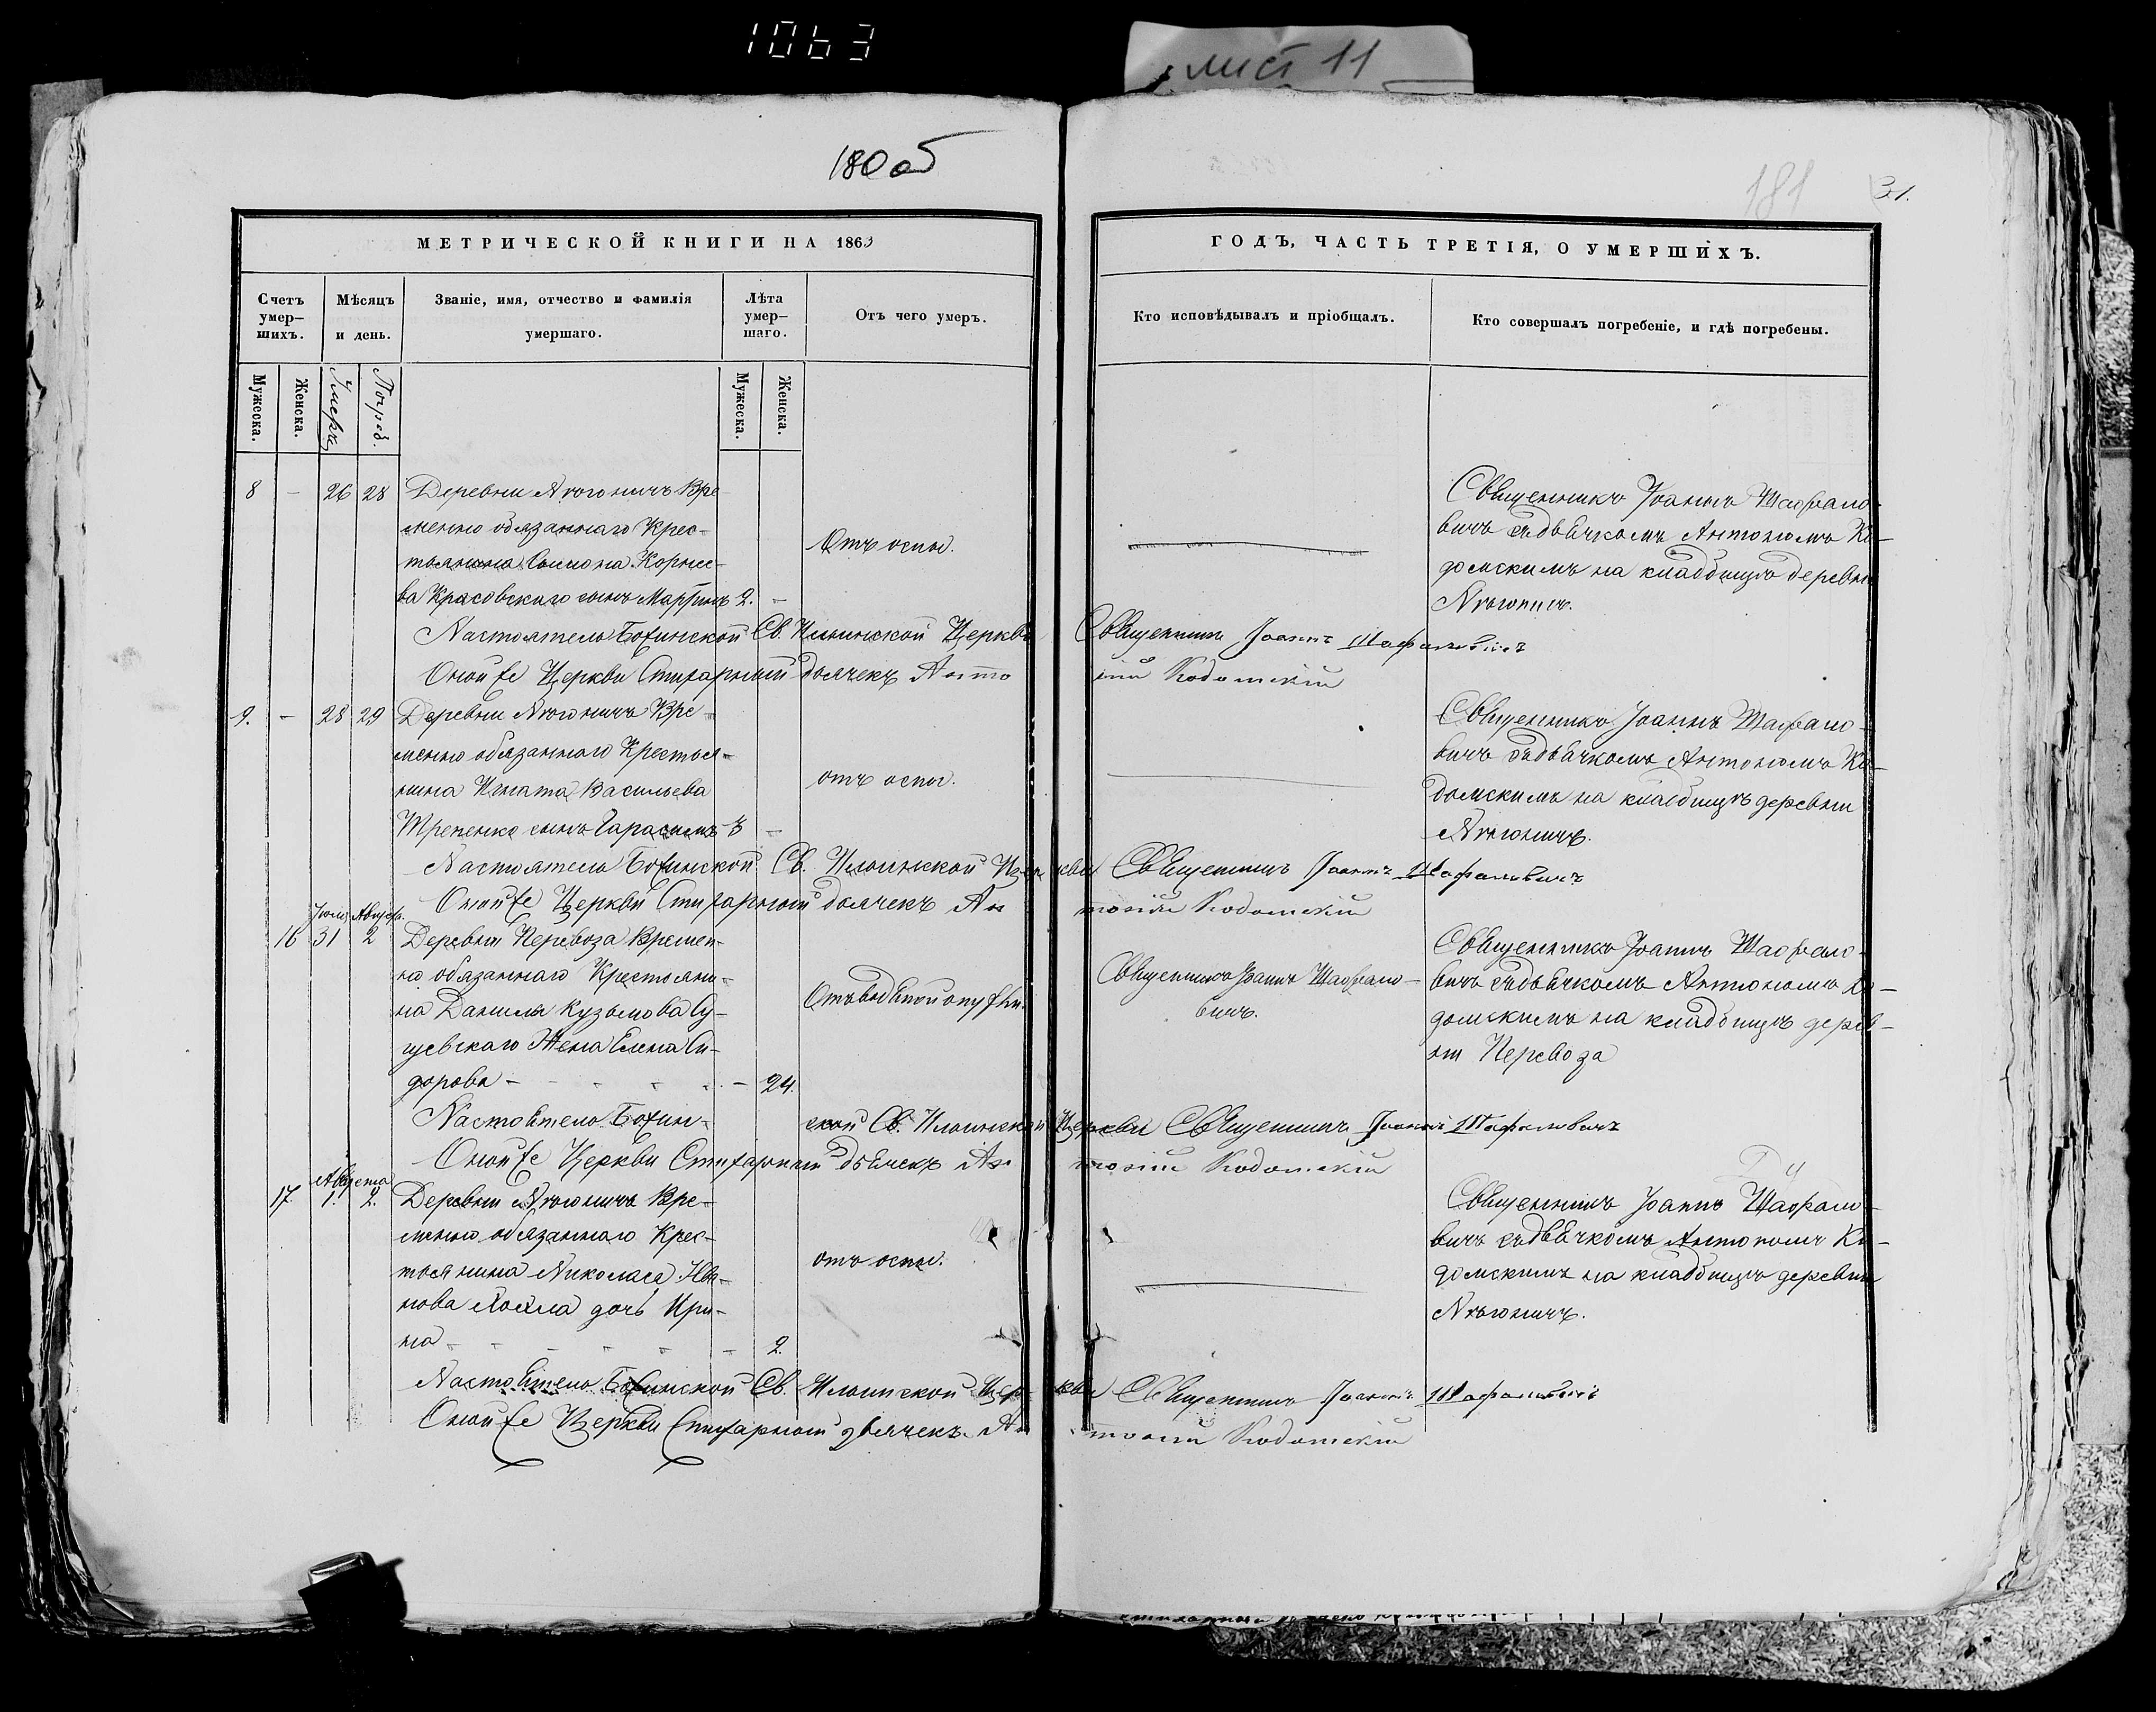 1063
лист 11
180 об
181
31.
МЕТРИЧЕСКОЙ КНИГИ НА 1863
ГОДЪ, ЧАСТЬ ТРЕТІЯ, О УМЕРШИХЪ.
Счетъ умер-шихъ.
Мѣсяцъ и день.
Званіе, имя, отчество и фамилія умершаго.
Лѣта умер-шаго.
Отъ чего умеръ.
Кто исповѣдывалъ и пріобщалъ.
Кто совершалъ погребеніе, и гдѣ погребены.
Мужеска.
Женска.
Умеръ
Погреб.
Мужеска.
Женска.
8 - 26 28 Деревни Вре-
менно обязаннаго Крес-
тьянина Симона Корнее-
ва Красовскаго сынъ Мартинъ 2. -
Отъ оспы.
Священникъ Іоаннъ Шафало-
вичъ съ дьячкомъ Антоніемъ Ко-
домскимъ на кладбищѣ деревни
Настоятель Божинской Св. Ильинской Церкви Священникъ Іоаннъ Шафаловичъ
Оной же Церкви Стихарный дьячекъ Антоній Кодомскій
9. - 28 29 Деревни Вре-
менно обязаннаго Крестья-
нина Игната Васильева
сынъ Гарасимъ 3 -
отъ оспы.
Священникъ Іоаннъ Шафало-
вичъ съ дьячкомъ Антоніемъ Ко-
домскимъ на кладбищѣ деревни
Настоятель Божинской Св. Ильинской Церкви Священникъ Іоаннъ Шафаловичъ
Оной же Церкви Стихарный дьячекъ Антоній Кодомскій
Іюля Августа
16 31 2 Деревни Перевоза Времен-
но обязаннаго Крестьяни-
на Данила Кузьмова Су-
щевскаго Жена Елена Си-
дорова - - 24.
Отъ водяной опухли.
Священникъ Іоаннъ Шафало-
вичъ.
Священникъ Іоаннъ Шафало-
вичъ съ дьячкомъ Антоніемъ Ко-
домскимъ на кладбищѣ дерев-
ни Перевоза
Настоятель Божинской Св. Ильинской Церкви Священникъ Іоаннъ Шафаловичъ
Оной же Церкви Стихарный дьячекъ Антоній Кодомскій
Августа
17 1. 2. Деревни Вре-
менно обязаннаго Крес-
тьянина Николая Ива-
нова дочь Ири-
на - - 2.
отъ оспы.
Священникъ Іоаннъ Шафало-
вичъ съ дьячкомъ Антоніемъ Ко-
домскимъ на кладбищѣ деревни
Настоятель Божинской Св. Ильинской Церкви Священникъ Іоаннъ Шафаловичъ
Оной же Церкви Стихарный дьячекъ Антоній Кодомскій